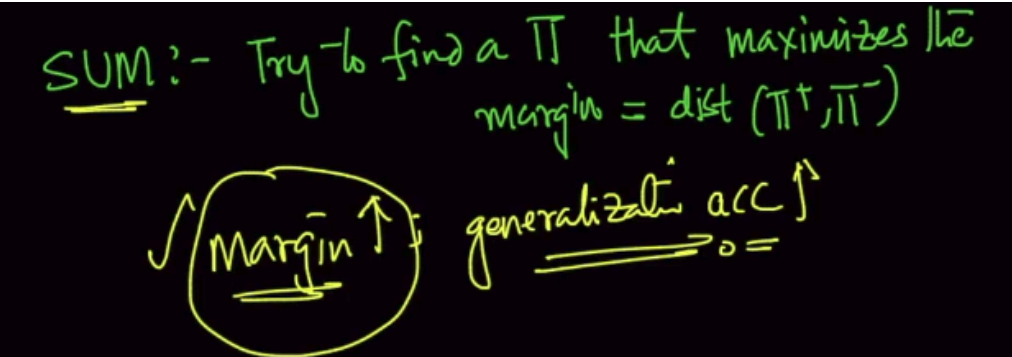 SVM:- Try to find a Π that maximizes the
margin = dist (Π⁺, Π⁻)
Margin ↑; generalizatin acc ↑